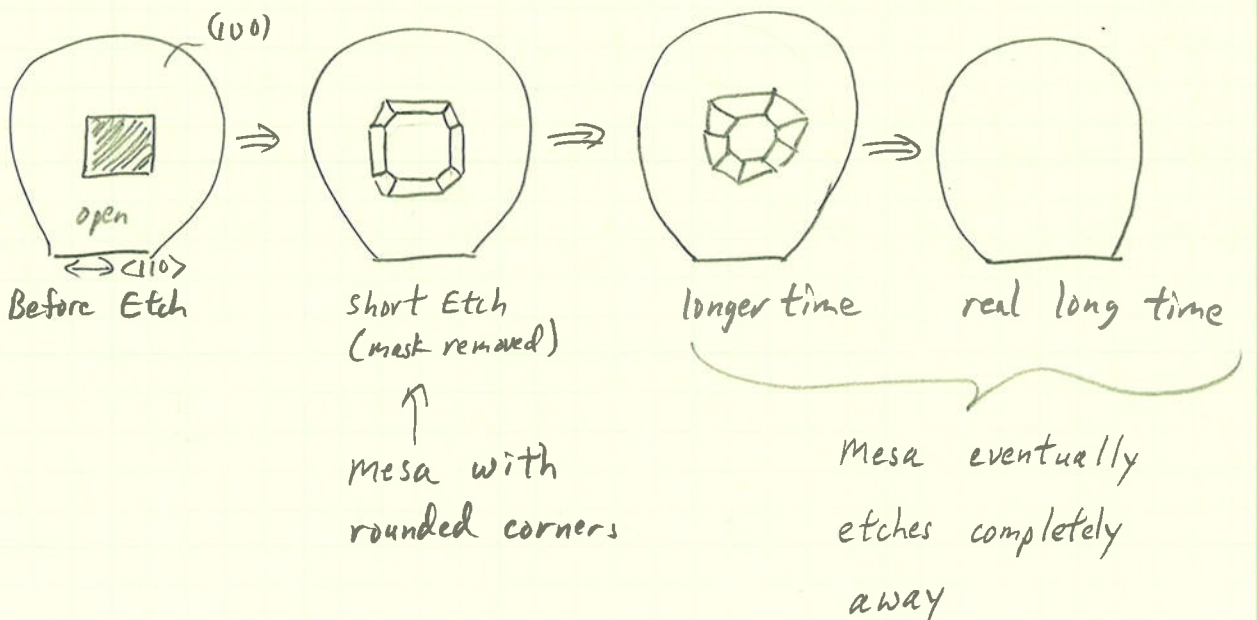 (100)
open
<110>
Before Etch
short Etch
(mask removed)
longer time
real long time
Mesa with
rounded corners
Mesa eventually
etches completely
away